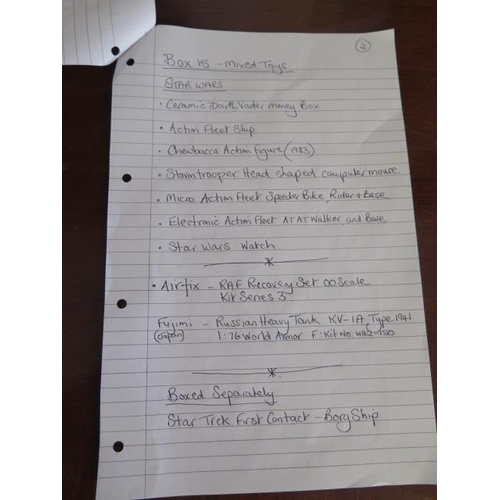 2
Box 15 - Mixed Toys
STAR WARS
• Ceramic Darth Vader Money Box
• Action Fleet Ship
• Chewbacca Action Figure (1983)
• Stormtrooper Head shaped computer mouse
• Micro Action Fleet Speeder Bike, Rider + Base
• Electronic Action Fleet AT AT Walker, and Base
• Star Wars Watch
• Airfix - RAF Recovery Set OO Scale
Kit Series 3
Fujimi - Russian Heavy Tank KV-1A, Type 1941
(Japan) 1:76 World Armor F: Kit No
Boxed Separately
Star Trek First Contact - Borg Ship